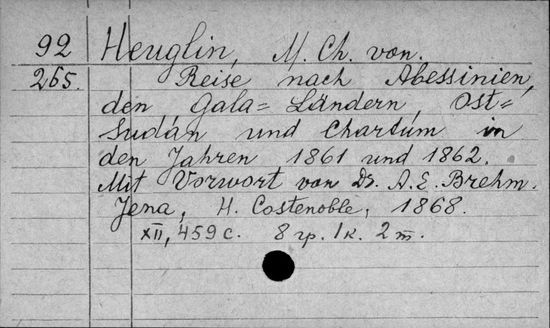 92 Heuglin, M. Ch. von.
265. Reise nach Abessinien,
den Gala= Ländern, Ost=
Sudán und Chartúm in
den Jahren 1861 und 1862.
Mit Vorwort von Dr. A. E. Brehm.
Jena, H. Costenoble, 1868.
XII, 459 с. 8 гр. 1 к. 2 т.